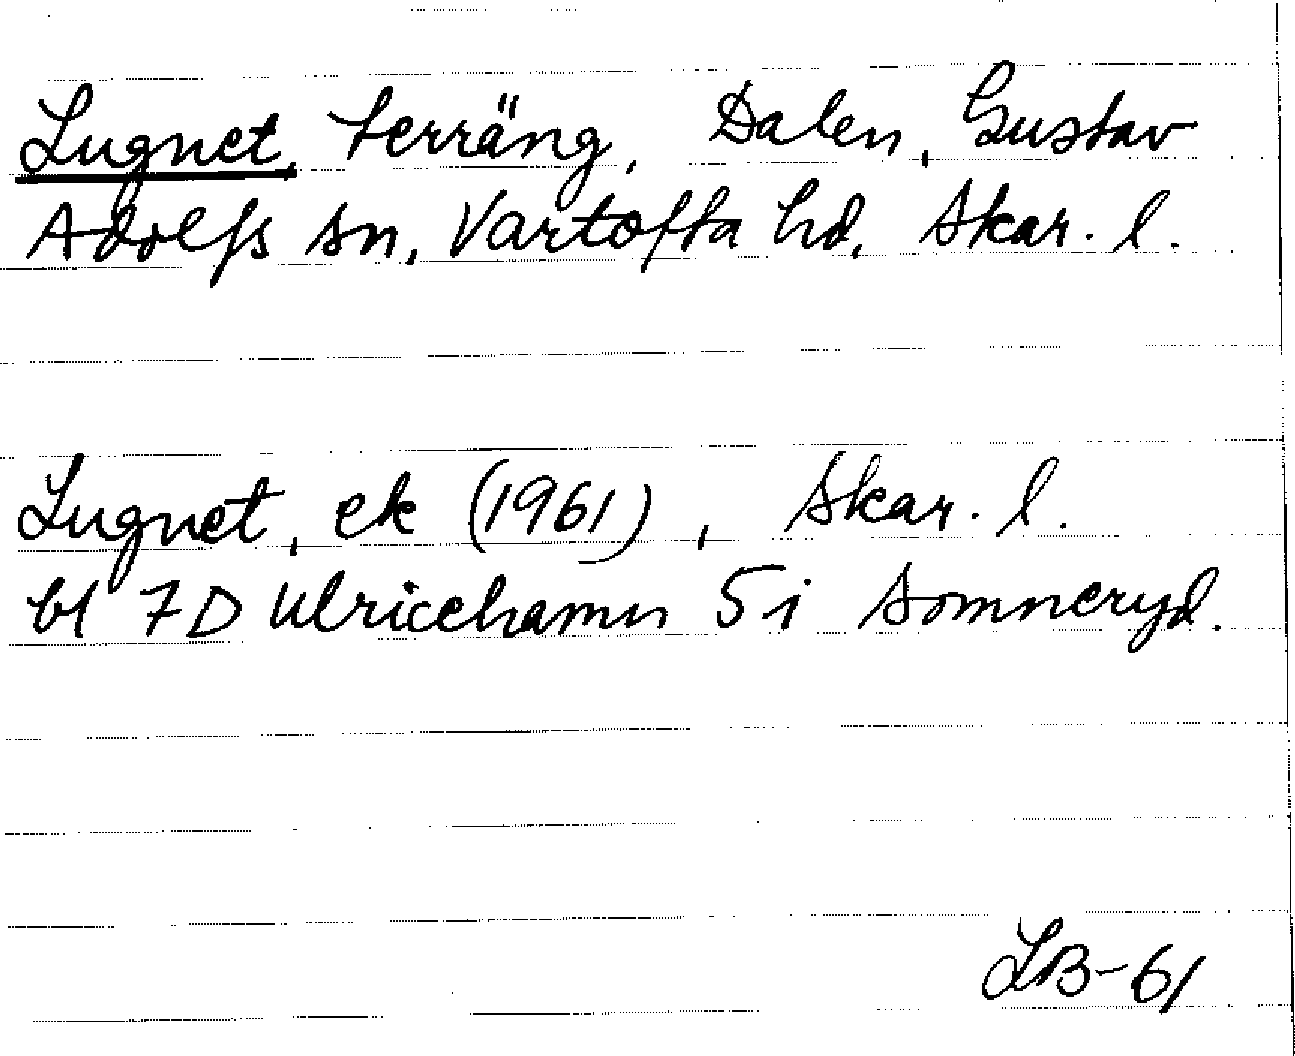 Lugnet, terräng, Dalen, Gustav
Adolfs sn, Vartofta hd, Skar. l.
Lugnet, ek (1961), Skar. l.
bl 7D Ulricehamn 5i Somneryd.
LB-61